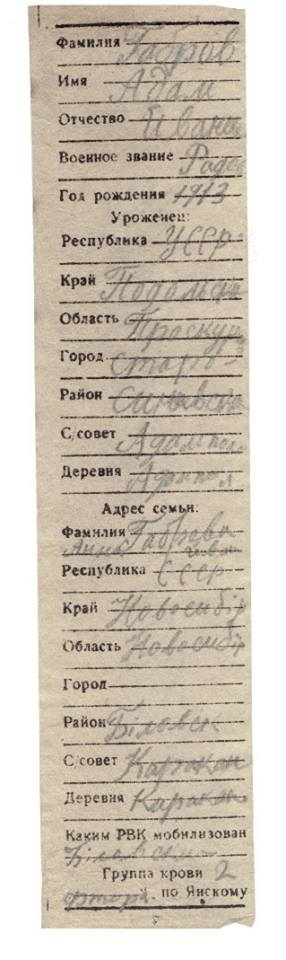 Фамилия Габров
Имя Адам
Отчество Ивано
Военное звание Радо
Год рождения 1913
Уроженец:
Республика УССР
Край Подольск
Область Проскур
Город Старо-
Район Синявск
С/совет Адампол
Деревня Адампол
Адрес семьи:
Фамилия Габрова
Анна
Республика СССР
Край Новосибір
Область Новосибір
Город
Район Біловск
С/совет Каракан
Деревня Каракан
Каким РВК мобилизован
Біловским
Группа крови 2
втора. по Янскому